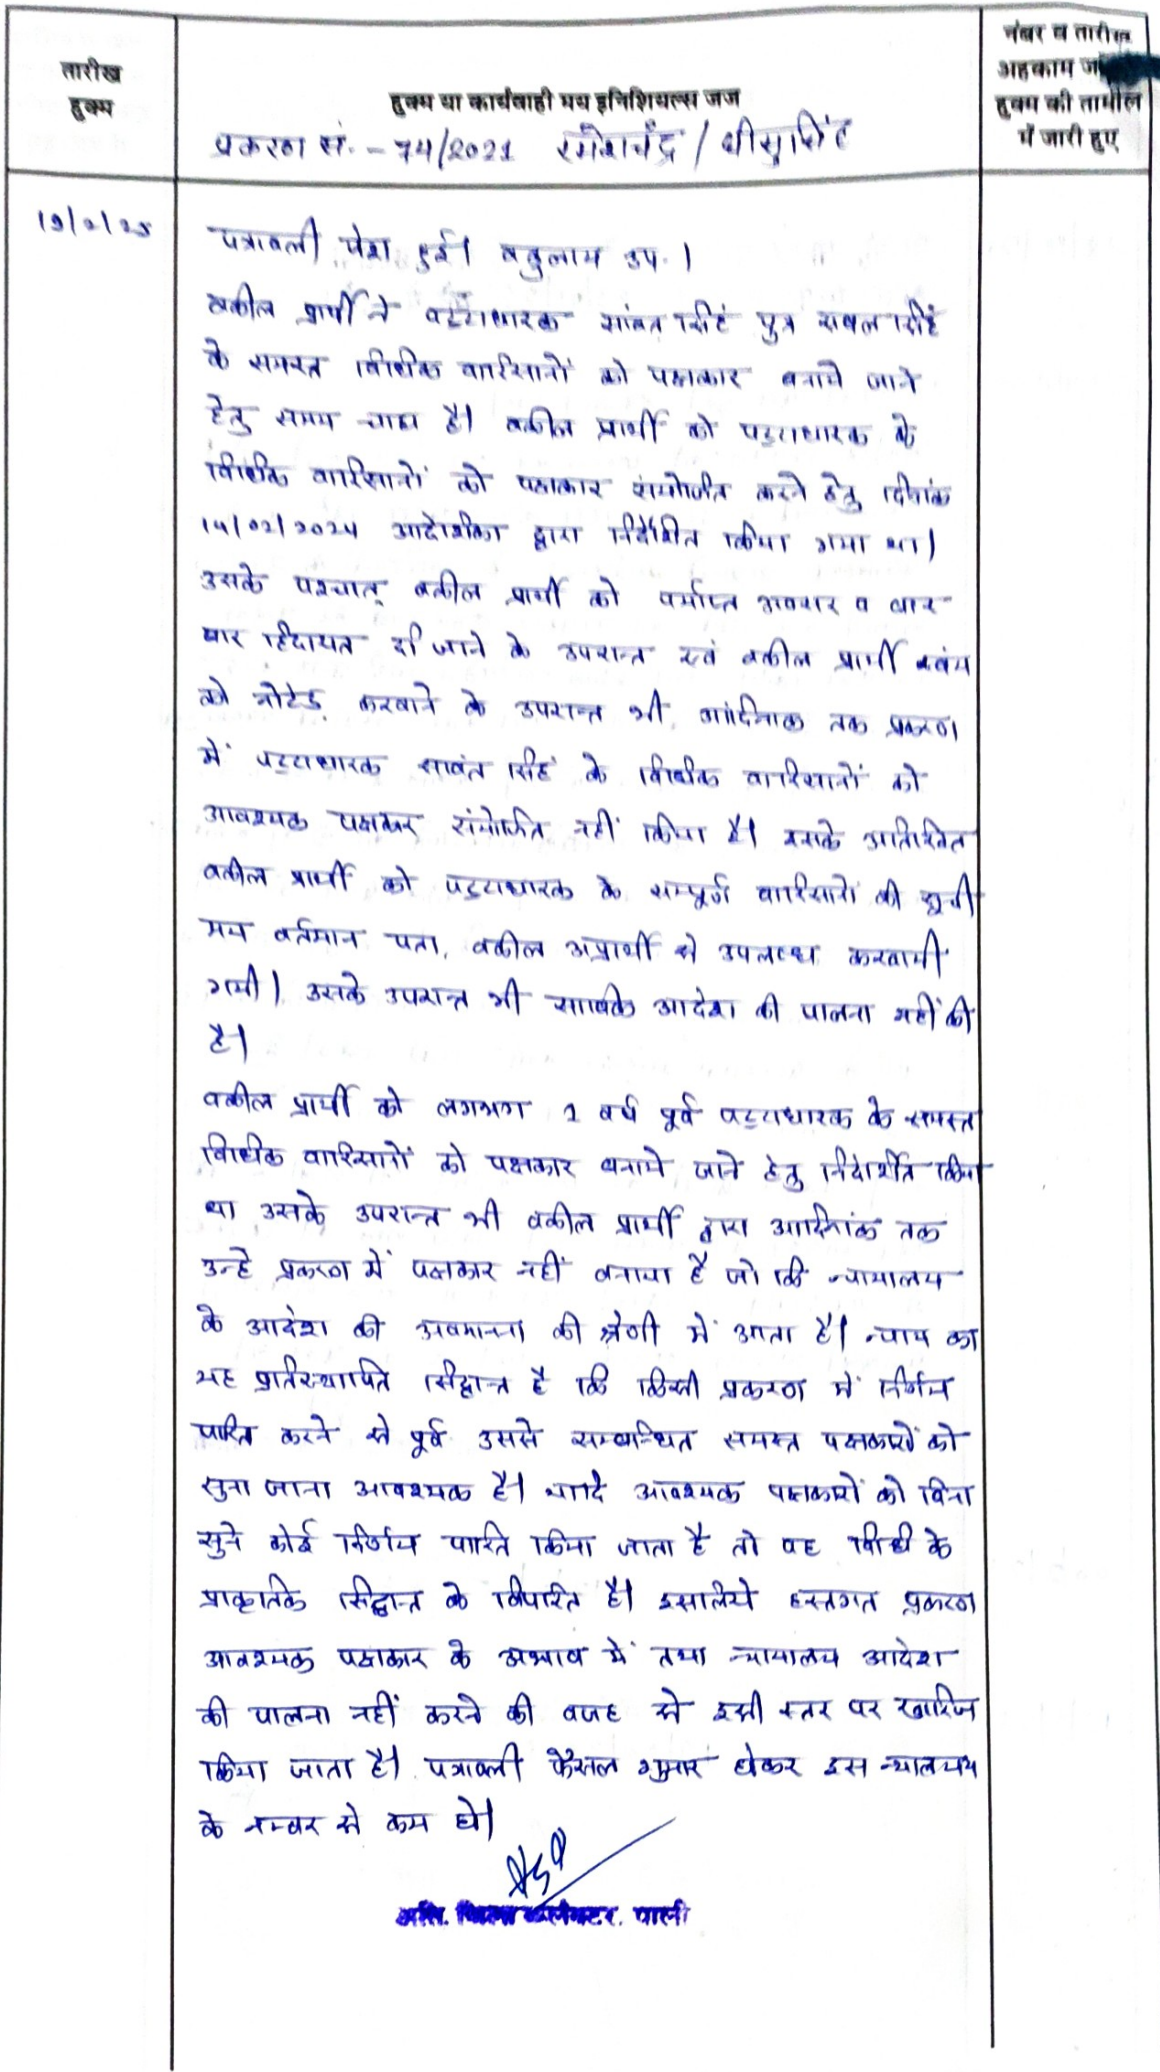 तारीख
हुक्म
हुक्म या कार्यवाही मय इनिशियल्स जज
नंबर व तारीख
अहकाम
हुक्म की तामील
में जारी हुए
प्रकरण सं. - 74/2021 रमेशचंद्र /
पत्रावली पेश हुई। वकुलाय उप.।
वकील प्रार्थी ने पट्टाधारक सांवत सिंह पुत्र सबल सिंह
के समस्त विधिक वारिसानों को पक्षकार बनाये जाने
हेतु समय चाहा है। वकील प्रार्थी को पट्टाधारक के
विधिक वारिसानों को पक्षकार संयोजित करने हेतु दिनांक
14/02/2024 आदेशिका द्वारा निर्देशित किया गया था।
उसके पश्चात् वकील प्रार्थी को पर्याप्त अवसर व बार
बार हिदायत दी जाने के उपरान्त एवं वकील प्रार्थी स्वंय
को नोटेड करवाने के उपरान्त भी आदिनांक तक प्रकरण
में पट्टाधारक सावंत सिंह के विधिक वारिसानों को
आवश्यक पक्षकार संयोजित नहीं किया है। इसके अतिरिक्त
वकील प्रार्थी को पट्टाधारक के सम्पूर्ण वारिसानों की सूची
मय वर्तमान पता, वकील अप्रार्थी से उपलब्ध करवायी
गयी। उसके उपरान्त भी साबिक आदेश की पालना नहीं की
है।
वकील प्रार्थी को लगभग 1 वर्ष पूर्व पट्टाधारक के समस्त
विधिक वारिसानों को पक्षकार बनाये जाने हेतु निर्देशित किया
था उसके उपरान्त भी वकील प्रार्थी द्वारा आदिनांक तक
उन्हे प्रकरण में पक्षकार नहीं बनाया है जो कि न्यायालय
के आदेश की अवमानना की श्रेणी में आता है। न्याय का
यह प्रतिस्थापित सिद्धान्त है कि किसी प्रकरण में निर्णय
पारित करने से पूर्व उससे सम्बन्धित समस्त पक्षकारों को
सुना जाना आवश्यक है। यदि आवश्यक पक्षकारों को बिना
सुने कोई निर्णय पारित किया जाता है तो वह विधी के
प्राकृतिक सिद्धान्त के विपरित है। इसलिये हस्तगत प्रकरण
आवश्यक पक्षकार के अभाव में तथा न्यायालय आदेश
की पालना नहीं करने की वजह से इसी स्तर पर खारिज
किया जाता है। पत्रावली फैसल शुमार होकर इस न्यालयय
के नम्बर से कम हो।
अति. जिला कलेक्टर. पाली